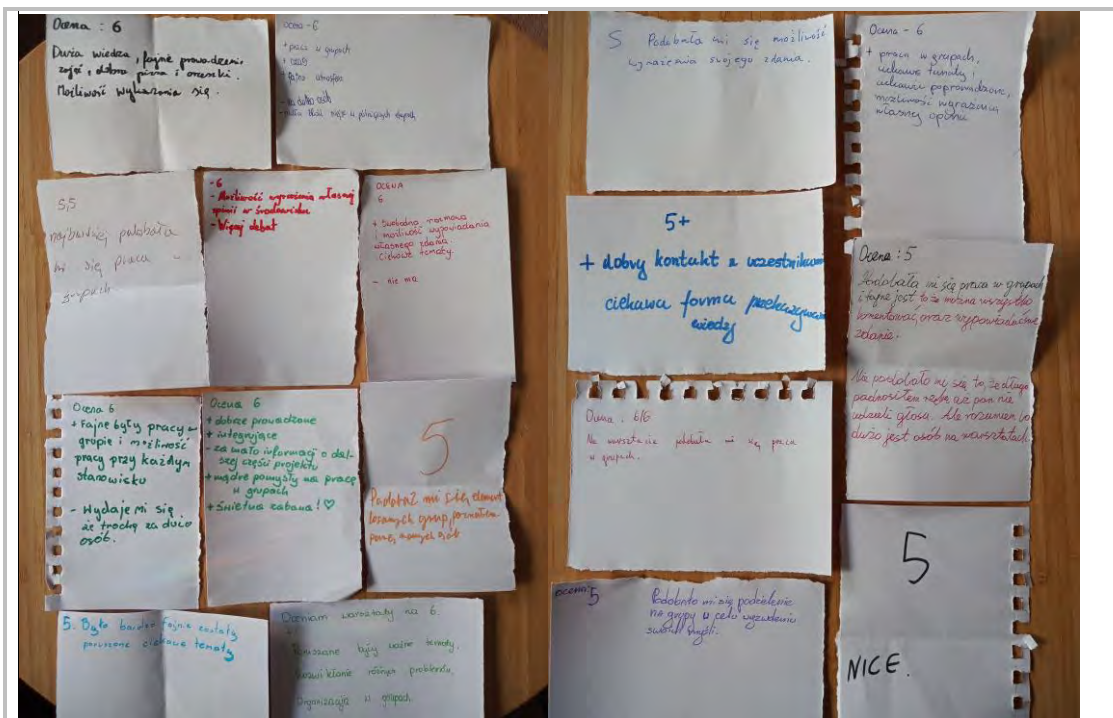 Ocena : 6
Duża wiedza, fajne prowadzenie
zajęć, dobra
Możliwość wykazania się.
Ocena - 6
+ praca w grupach
+ czas
+ fajna atmosfera
- za dużo osób
5,5
najbardziej podobała
mi się praca w
grupach
- 6
- Możliwość wyrażenia własnej
opinii w środowisku
- Więcej debat
OCENA
6
+ swobodna rozmowa
i możliwość wypowiadania
własnego zdania.
ciekawe tematy
- nie ma
Ocena 6
+ Fajne były pracy w
grupie i możliwość
pracy przy każdym
stanowisku
- Wydaje mi się
że trochę za dużo
osób.
Ocena 6
+ dobrze prowadzone
+ integrujące
- za mało informacji o dal-
szej części projektu
+ mądre pomysły na pracę
w grupach
+ świetna zabawa! ♡
5
Podobał mi się element
losowych grup, poznałem
nowych osób
5. Było bardzo fajnie zostały
poruszone ciekawe tematy
Oceniam warsztaty na 6.
+
Poruszane były ważne tematy,
Rozwikłanie różnych problemów,
Organizacja w grupach
5 Podobała mi się możliwość
wyrażenia swojego zdania.
Ocena - 6
+ praca w grupach,
ciekawe tematy i
ciekawie poprowadzone,
możliwość wyrażenia
własnej opinii
5+
+ dobry kontakt z uczestnikami
ciekawa forma przekazywania
wiedzy
Ocena : 5
Podobała mi się praca w grupach
i fajne jest to że można wszystko
komentować oraz wypowiadać swoje
zdanie.
Nie podobało mi się to, że długo
podnosiłem rękę aż pan mi
udzieli głosu. Ale rozumiem bo
dużo jest osób na warsztatach
Ocena : 6/6
Na warsztacie podobała mi się praca
w grupach.
ocena: 5 Podobało mi się podzielenie
na grupy w celu
swoich myśli.
5
NICE.